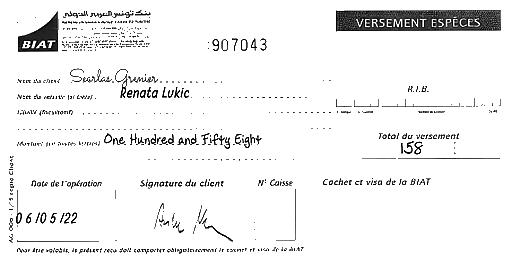 بنك تونس العربي الدولي
BIAT
VERSEMENT ESPÈCES
907043
Nom du client Searlas Grenier
Nom du verseur (si tiers) . Renata Lukic
R.I.B.
Libellé (facultatif)
Montant (en toutes lettres) One Hundred and Fifty Eight
Total du versement
158
Date de l'opération
Signature du client
N° Caisse
Cachet et visa de la BIAT
06/05/22
Pour être valable, le présent reçu doit comporter obligatoirement le cachet et visa de la BIAT